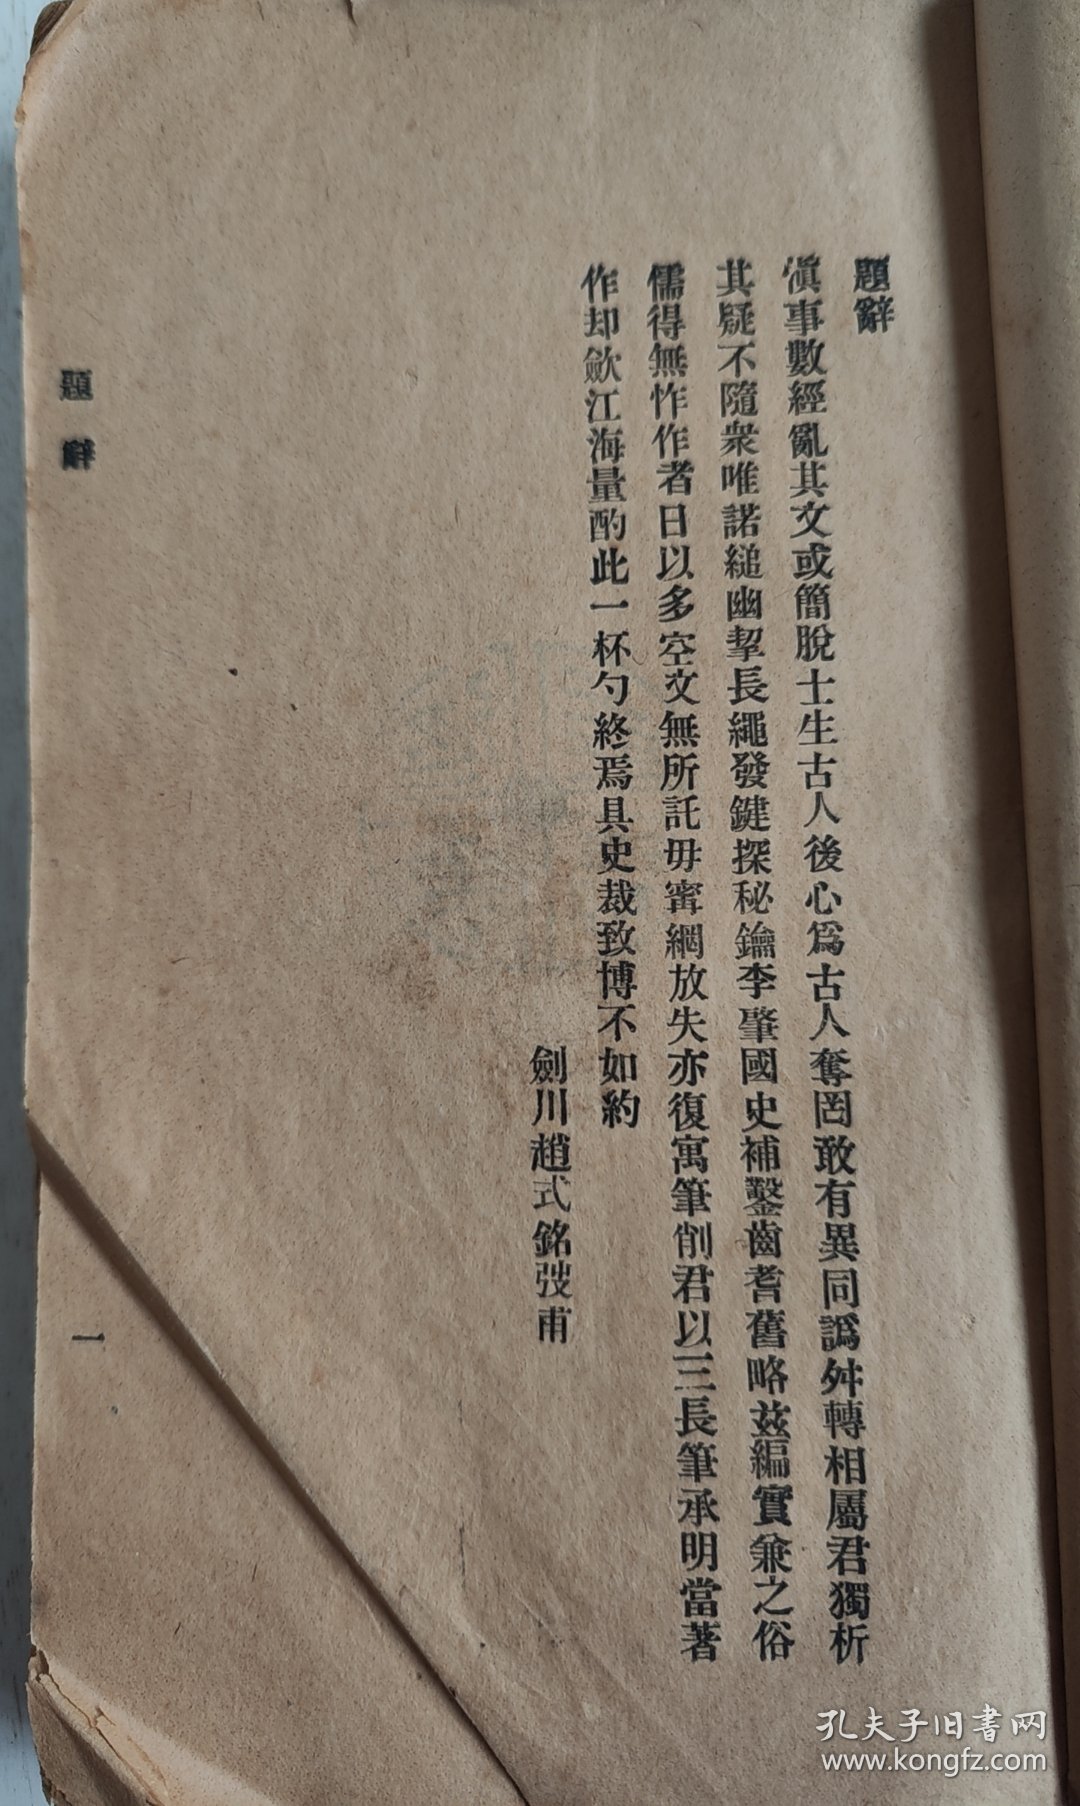 題辭
滇事數經亂其文或簡脫士生古人後心爲古人奪罔敢有異同譌舛轉相屬君獨析
其疑不隨衆唯諾縋幽挈長繩發鍵探秘鑰李肇國史補鑿齒耆舊略茲編實兼之俗
儒得無怍作者日以多空文無所託毋甯網放失亦復寓筆削君以三長筆承明當著
作却歛江海量酌此一杯勺終焉具史裁致博不如約
劍川趙式銘弢甫
題辭
一
孔夫子旧書网
www.kongfz.com